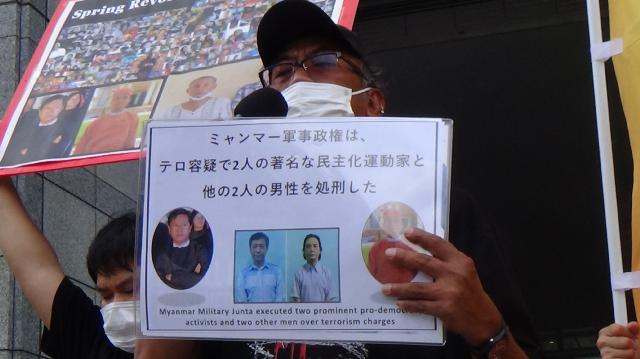 Spring
ミャンマー軍事政権は、
テロ容疑で2人の著名な民主化運動家と
他の2人の男性を処刑した
Myanmar Military Junta executed two prominent
activists and two other men over terrorism charges